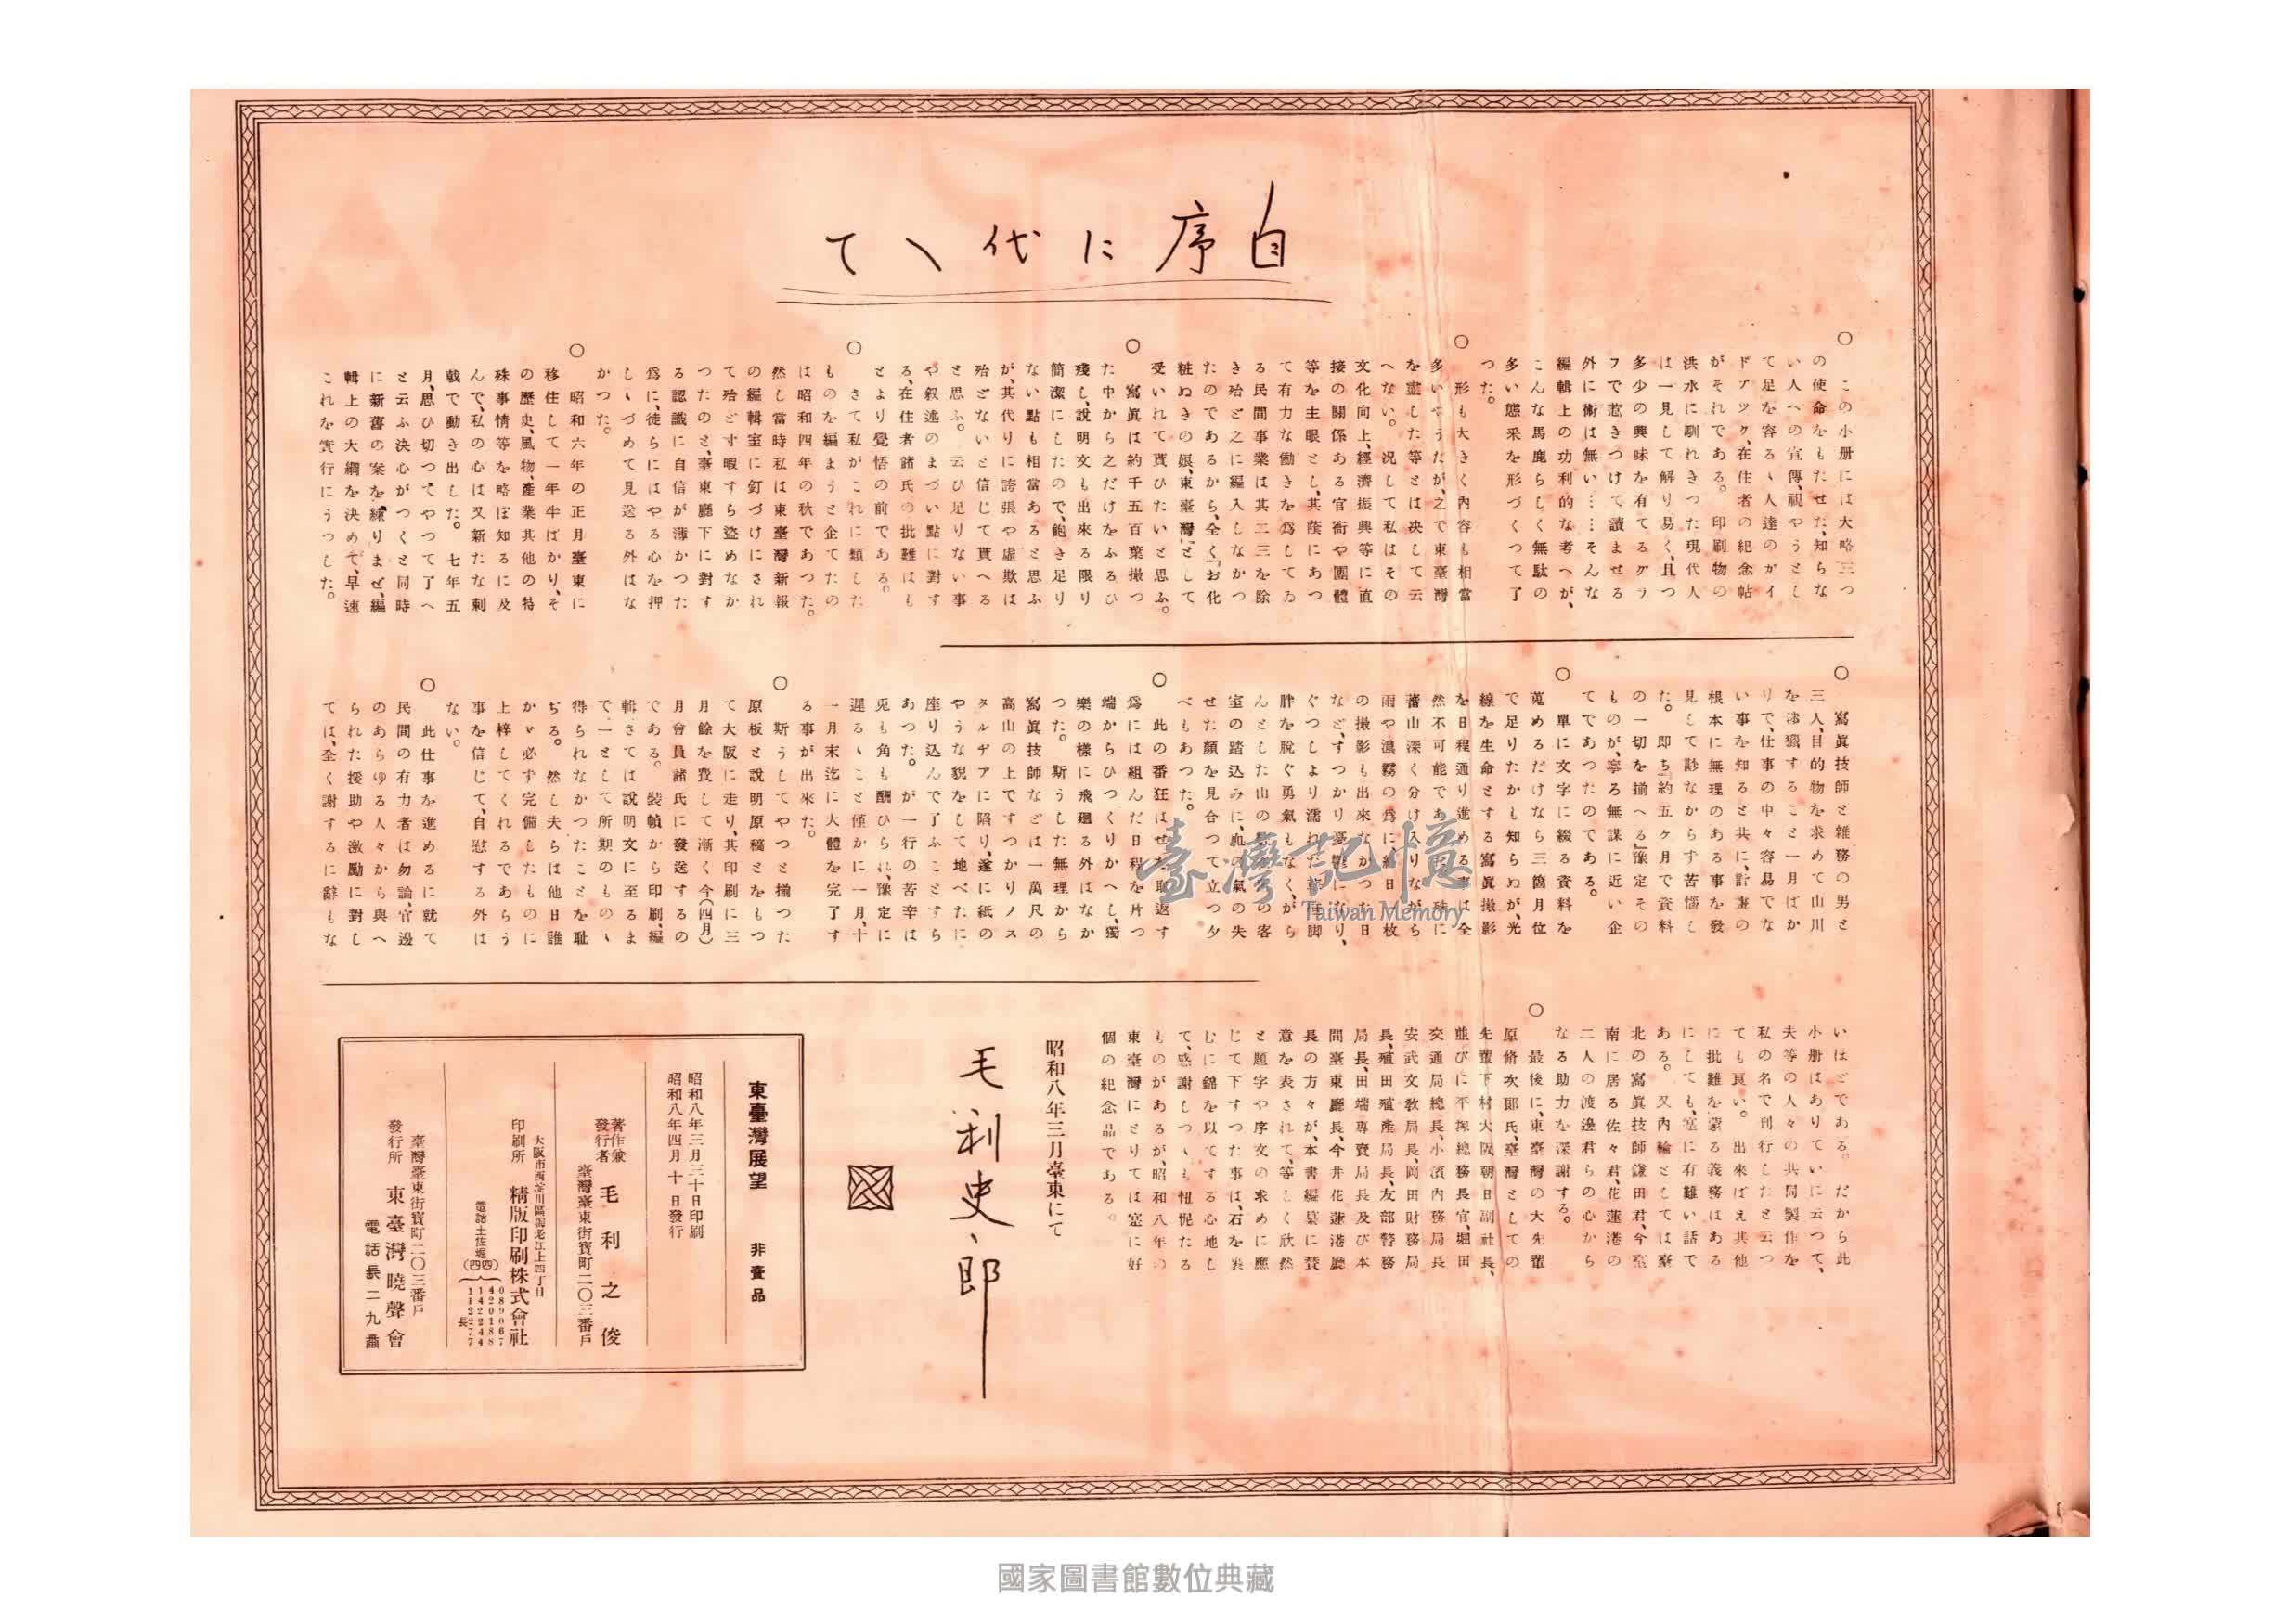 自序に代へて
○
この小册には大略三つ
の使命をもたせた、知らな
い人への宣傳、視やうとし
て足を容るゝ人達のガイ
ドブツク、在住者の紀念帖
がそれである。印刷物の
洪水に刷れきつた現代人
は一見して解り易く、且つ
多少の興味を有てるグラ
フで惹きつけて讀ませる
外に術は無い……そんな
編輯上の功利的な考へが、
こんな馬鹿らしく無駄の
多い態采を形づくつて了
つた。
○
形も大きく內容も相當
多いやうだが、之で東臺灣
を盡した等とは決して云
へない。況して私はその
文化向上、經濟振興等に直
接の關係ある官衙や團體
等を主眼とし、其蔭にあつ
て有力な働きを爲してゐ
る民間事業は其二三を除
き殆ど之に編入しなかつ
たのであるから、全く「お化
粧ぬきの娘、東臺灣」として
受いれて貰ひたいと思ふ。
○
寫眞は約千五百葉撮つ
た中から之だけをふるひ
殘し、說明文も出來る限り
簡潔にしたので、飽き足り
ない點も相當あると思ふ
が、其代りに誇張や虛欺は
殆どないと信じて貰へる
と思ふ。云ひ足りない事
や叙述のまづい點に對す
る、在住者諸氏の批難はも
とより覺悟の前である。
○
さて私がこれに類した
ものを編まうと企てたの
は昭和四年の秋であつた。
然し當時私は東臺灣新報
の編輯室に釘づけにされ
て殆ど寸暇すら盜めなか
つたのと、臺東廳下に對す
る認識に自信が薄かつた
爲に、徒らにはやる心を押
しゝづめて見送る外はな
かつた。
○
昭和六年の正月臺東に
移住して一年半ばかり、そ
の歷史、風物、產業其他の特
殊事情等を略ぼ知るに及
んで、私の心は又新たな刺
戟で動き出した。七年五
月、思ひ切つてやつて了へ
と云ふ決心がつくと同時
に新舊の案を練りまぜ、編
輯上の大綱を決めて、早速
これを實行にうつした。
○
寫眞技師と雜務の男と
三人、目的物を求めて山川
を涉獵すること一月ばか
りで、仕事の中々容易でな
い事を知ると共に、計畫の
根本に無理のある事を發
見して尠なからず苦惱し
た。卽ち「約五ヶ月で資料
の一切を揃へる」豫定その
ものが、寧ろ無謀に近い企
てであつたのである。
○
單に文字に綴る資料を
蒐めるだけなら三箇月位
で足りたかも知らぬが、光
線を生命とする寫眞撮影
を日程通り進める事は全
然不可能であ
蕃山深く分け入りながら
雨や濃霧の爲に
の撮影も出來な
など、すつかり憂鬱になり、
ぐつしより濡れた
胖を脫ぐ勇氣もなく、がら
んとした山の
室の踏込みに、血の氣の失
せた顏を見合つて立つ夕
べもあつた。
○
此の番狂はせを取返す
爲には組んだ日程を片つ
端からひつくりかへし、獨
樂の樣に飛廻る外はなか
つた。斯うした無理から
寫眞技師などは一萬尺の
高山の上ですつかりノス
タルヂアに陷り、遂に紙の
やうな貌をして地べたに
座り込んで了ふことすら
あつた。が一行の苦辛は
兎も角も酬ひられ、豫定に
遲るゝこと僅かに一月、十
一月末迄に大體を完了す
る事が出來た。
○
斯うしてやつと揃つた
原板と說明原稿とをもつ
て大阪に走り、其印刷に三
月餘を費して漸く今(四月)
月會員諸氏に發送するの
である。裝幀から印刷、編
輯さては說明文に至るま
で、一として所期のものゝ
得られなかつたことを恥
ぢる。然し夫らは他日誰
かゞ必ず完備したものに
上梓してくれるであらう
事を信じて、自慰する外は
ない。
○
此仕事を進めるに就て
民間の有力者は勿論、官邊
のあらゆる人々から與へ
られた援助や激勵に對し
ては、全く謝するに辭もな
いほどである。だから此
小册はありていに云つて、
夫等の人々の共同製作を
私の名で刊行したと云つ
ても良い。出來ばえ其他
に批難を蒙る義務はある
にしても、寔に有難い話で
ある。又內輪としては臺
北の寫眞技師鎌田君、今臺
南に居る佐々君、花蓮港の
二人の渡邊君らの心から
なる助力を深謝する。
○
最後に、東臺灣の大先輩
原脩次郞氏、臺灣としての
先輩下村大阪朝日副社長、
並びに平塚總務長官、堀田
交通局總長、小濱內務局長
安武文敎局長、岡田財務局
長、殖田殖產局長、友部警務
局長、田端專賣局長及び本
間臺東廳長、今井花蓮港廳
長の方々が、本書編纂に賛
意を表されて、等しく欣然
と題字や序文の求めに應
じて下すつた事は、石を裝
むに錦を以てする心地し
て、感謝しつゝも忸怩たる
ものがあるが、昭和八年の
東臺灣にとりては寔に好
個の紀念品である。
昭和八年三月臺東にて
毛利史郎
東臺灣展望 非賣品
昭和八年三月三十日印刷
昭和八年四月十日發行
著作兼
發行者 毛利之俊
臺灣臺東街寶町二〇三番戶
大阪市西淀川區海老江上四丁目
印刷所 精版印刷株式會社
電話土佐堀(四四)
臺灣臺東街寶町二〇三番戶
發行所 東臺灣曉聲會
電話長二九番
臺灣記憶
Taiwan Memory
國家圖書館數位典藏